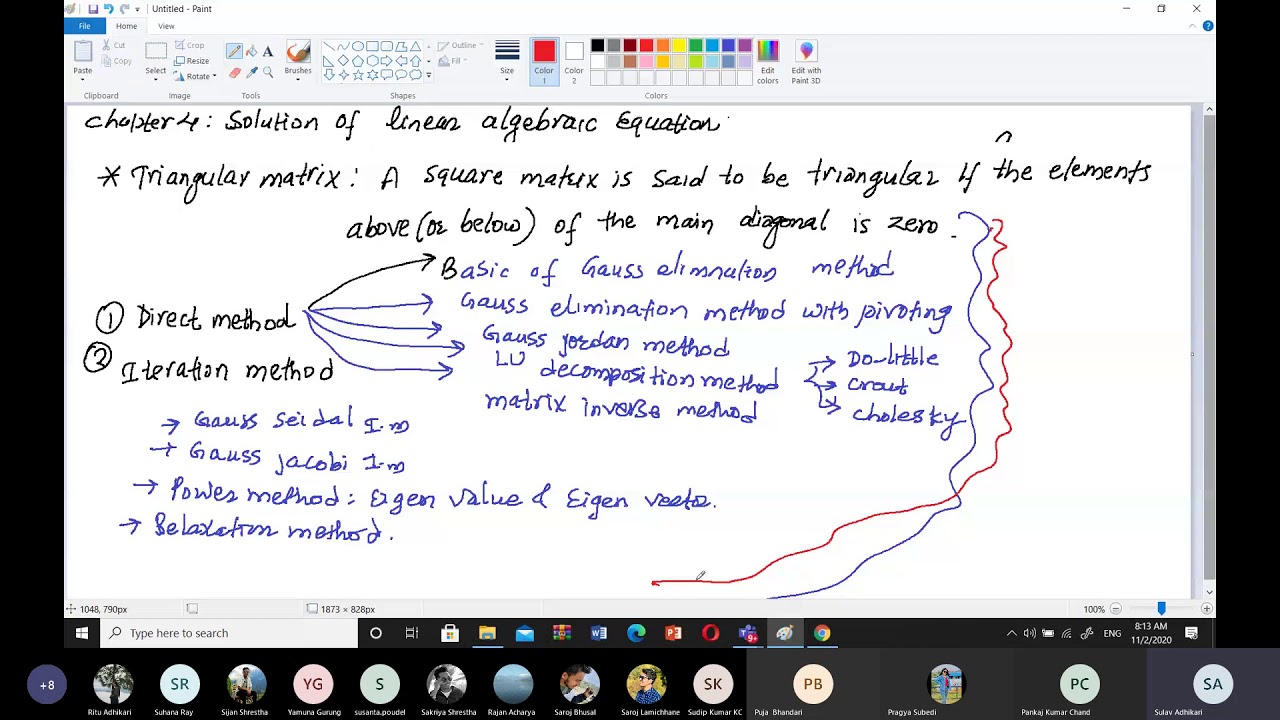 Untitled - Paint
File Home View
Paste Cut Copy Select Crop Resize Rotate Brushes Outline Fill Size Color 1 Color 2 Edit colors Edit with Paint 3D
Clipboard Image Tools Shapes Colors
chapter 4: Solution of linear algebraic Equation
* Triangular matrix: A square matrix is said to be triangular if the elements
above (or below) of the main diagonal is zero.
Basic of Gauss elimnation method
Gauss elimination method with pivoting
① Direct method
Gauss jordan method
LU decomposition method
Do-little
Crout
Cholesky
matrix inverse method
② Iteration method
→ Gauss Seidal I.m
→ Gauss jacobi I.m
→ Power method: Eigen value & Eigen vector.
→ Relaxation method.
1048, 790px 1873 × 828px 100%
Type here to search
9+
ENG 8:13 AM
11/2/2020
+8 SR YG S SK PB PC SA
Ritu Adhikari Suhana Ray Sijan Shrestha Yamuna Gurung susanta.poudel Sakriya Shrestha Rajan Acharya Saroj Bhusal Saroj Lamichhane Sudip Kumar KC Puja Bhandari Pragya Subedi Pankaj Kumar Chand Sulav Adhikari